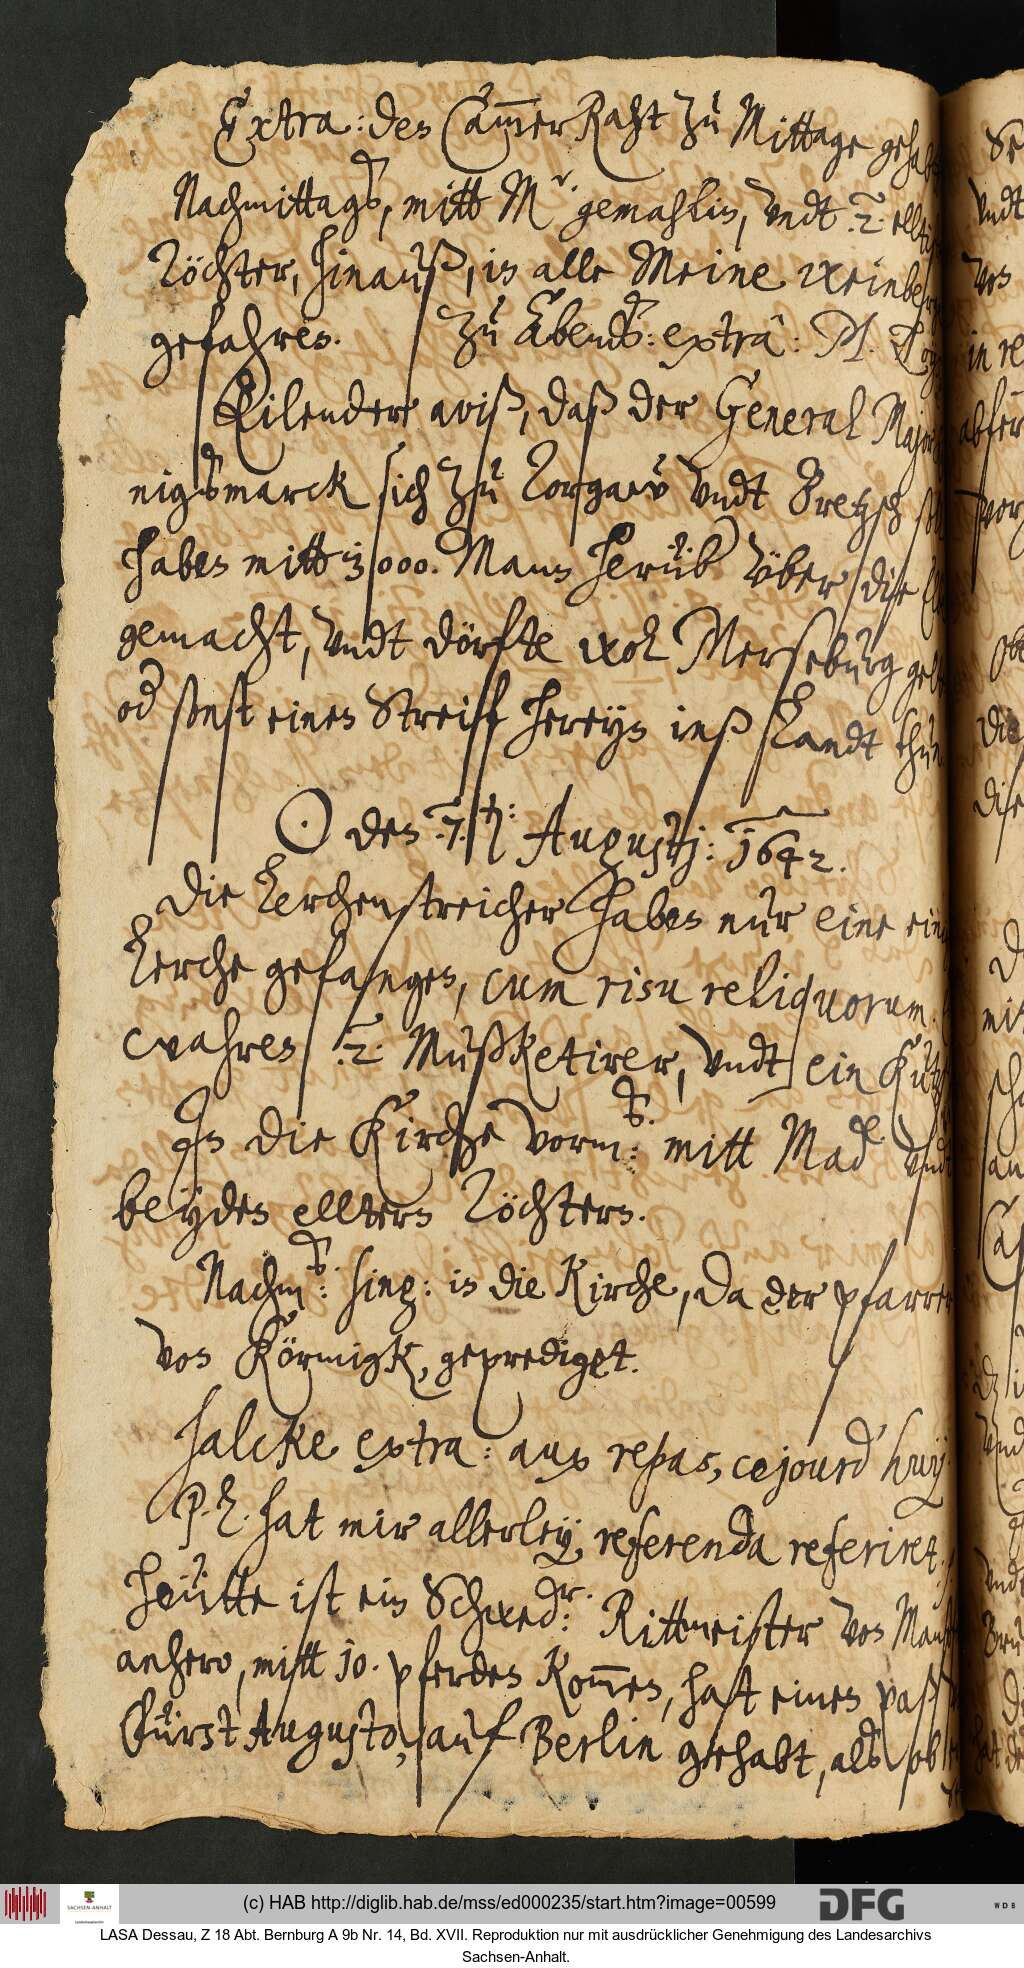 Extra: den Cam̅er Raht zu Mittage gehabt
Nachmittags, mitt Mr. gemahlin, vndt .2. elltisten
Töchter, hinauß, in alle Meine weinberge
gefahren. Zu Abends: extra: M.
Eilender aviß, daß der General Major
nigsmarck sich zu Torgaw vndt Pretzsch
haben mitt 3000. Mann herüb über die Elbe
gemacht, vndt dörfte wol Merseburg gelten
od sonst einen Streiff hereyn inß Landt thun
☉ den .7. t: Augustj: 1642.
Die Lerchenstreicher haben nur eine
Lerche gefangen, cum risu reliquorum.
wahren .2. Mußketirer, vndt ein
In die Kirche vorm:s mitt Mad vndt
beyden elltern Töchtern.
Nachm:s hing: in die Kirche, da der pfarrer
von Körmigk, geprediget.
Halcke extra: aux repas, cejourd'huy
P. L. hat mir allerley, referenda referiret.
Heütte ist ein Schwed:r. Rittmeister von
anhero, mitt 10. pferden kom̅en, hatt einen paß
Fürst Augusto, auf Berlin gehabt, als ob
(c) HAB http://diglib.hab.de/mss/ed000235/start.htm?image=00599
SACHSEN-ANHALT
DFG
WDB
LASA Dessau, Z 18 Abt. Bernburg A 9b Nr. 14, Bd. XVII. Reproduktion nur mit ausdrücklicher Genehmigung des Landesarchivs
Sachsen-Anhalt.